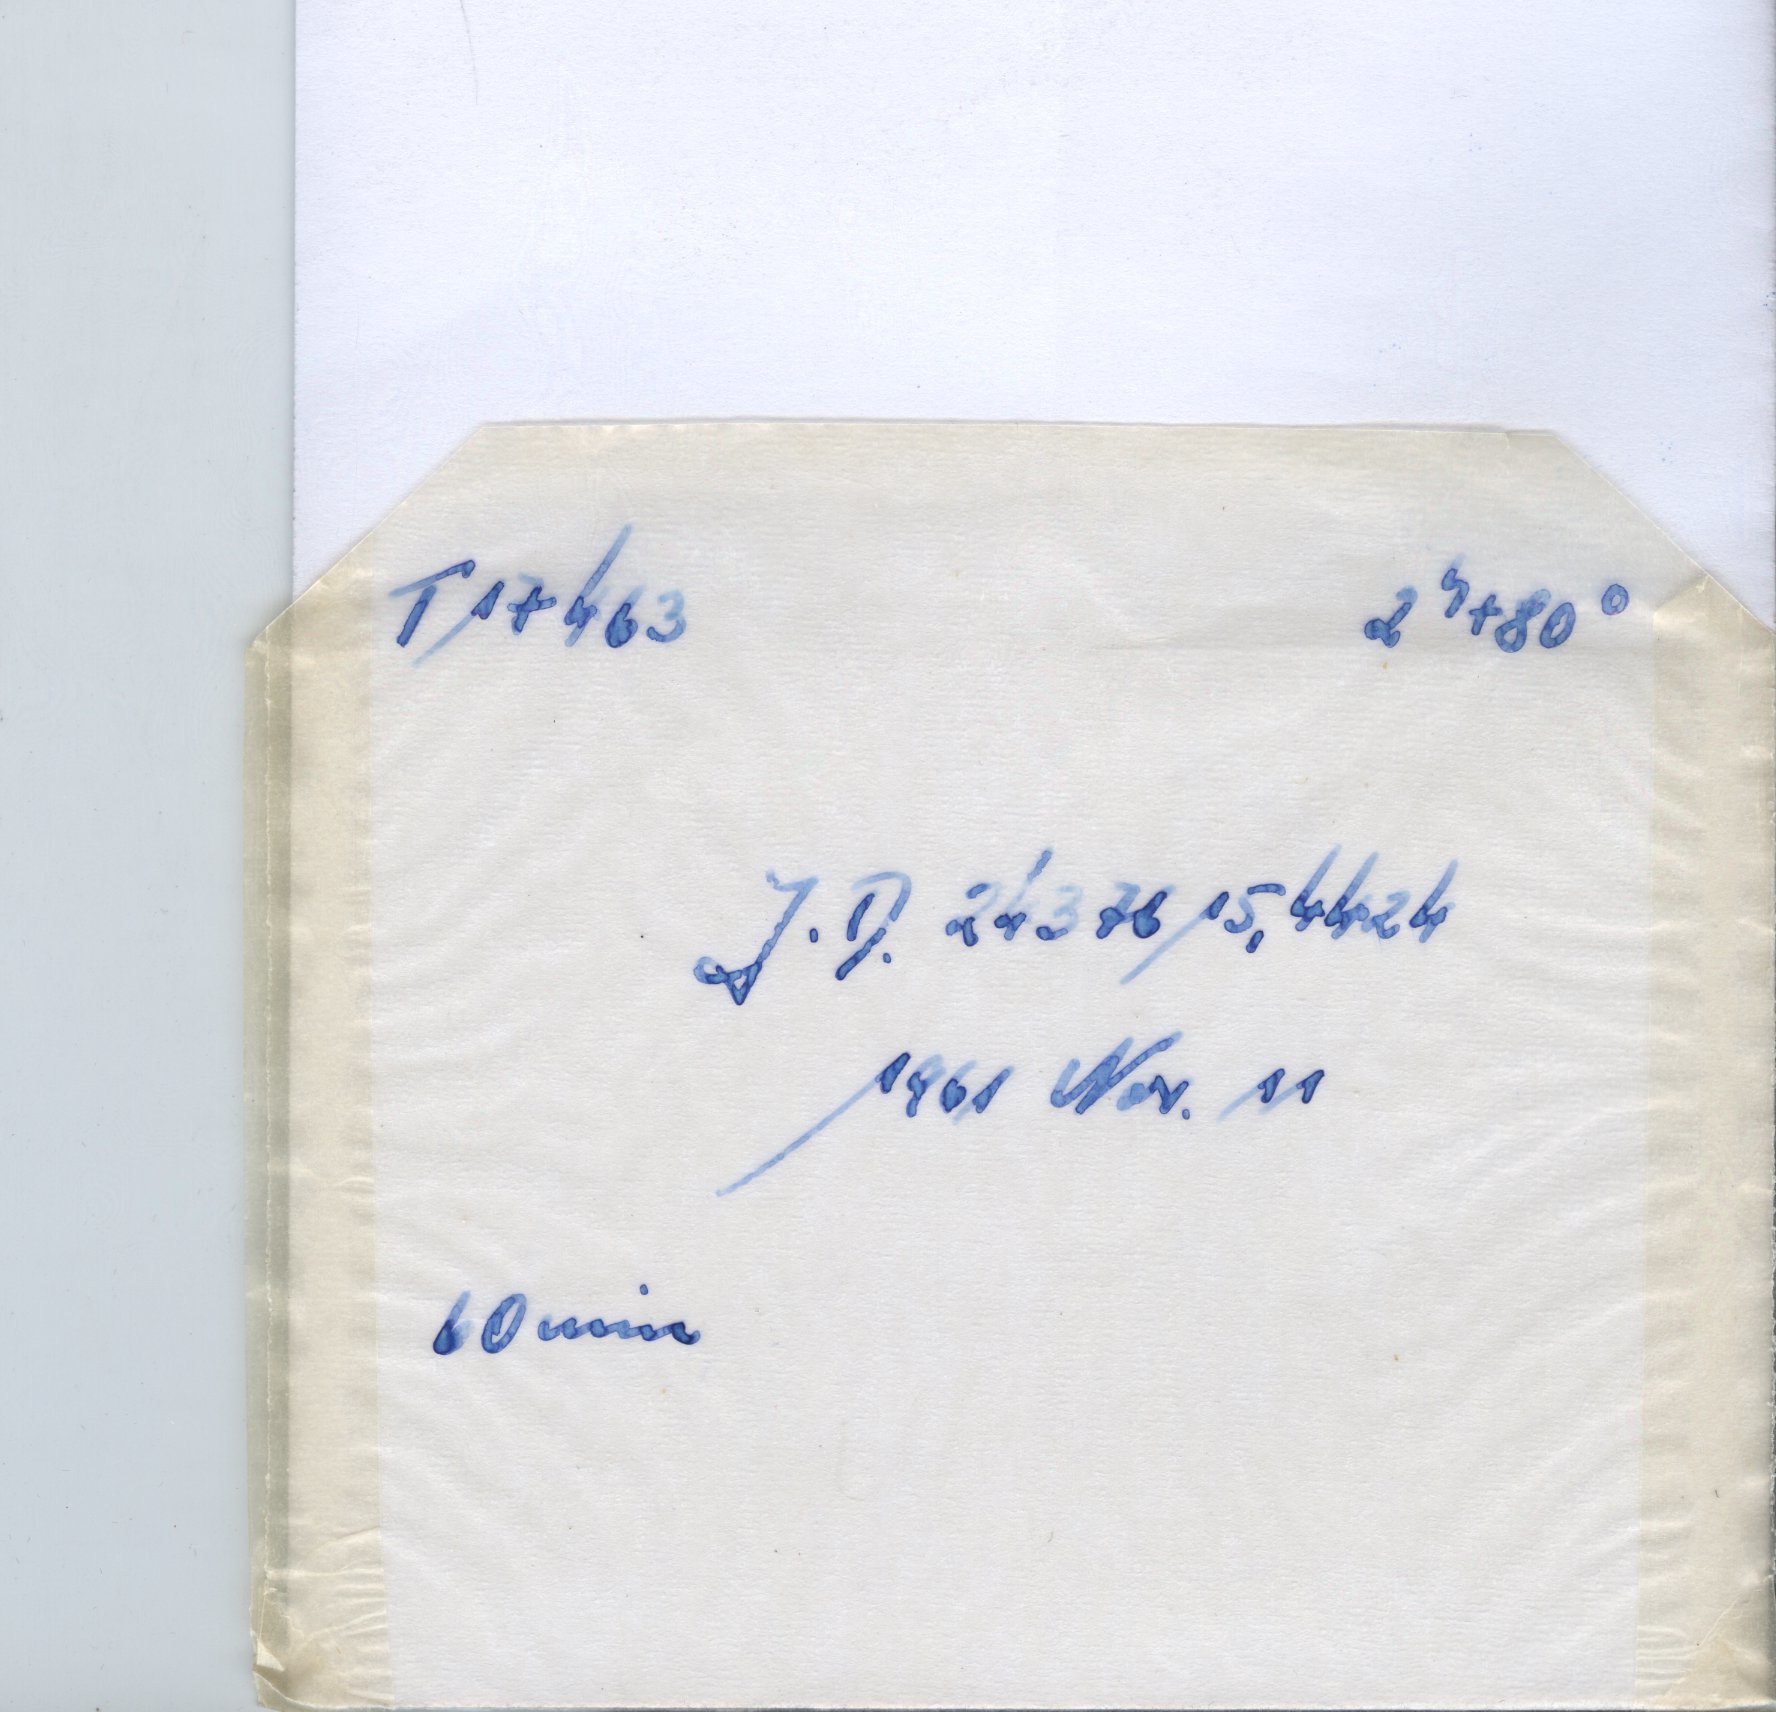 T17463 2ʰ+80°
J.D. 2437615,4424
1961 Nov. 11
60 min